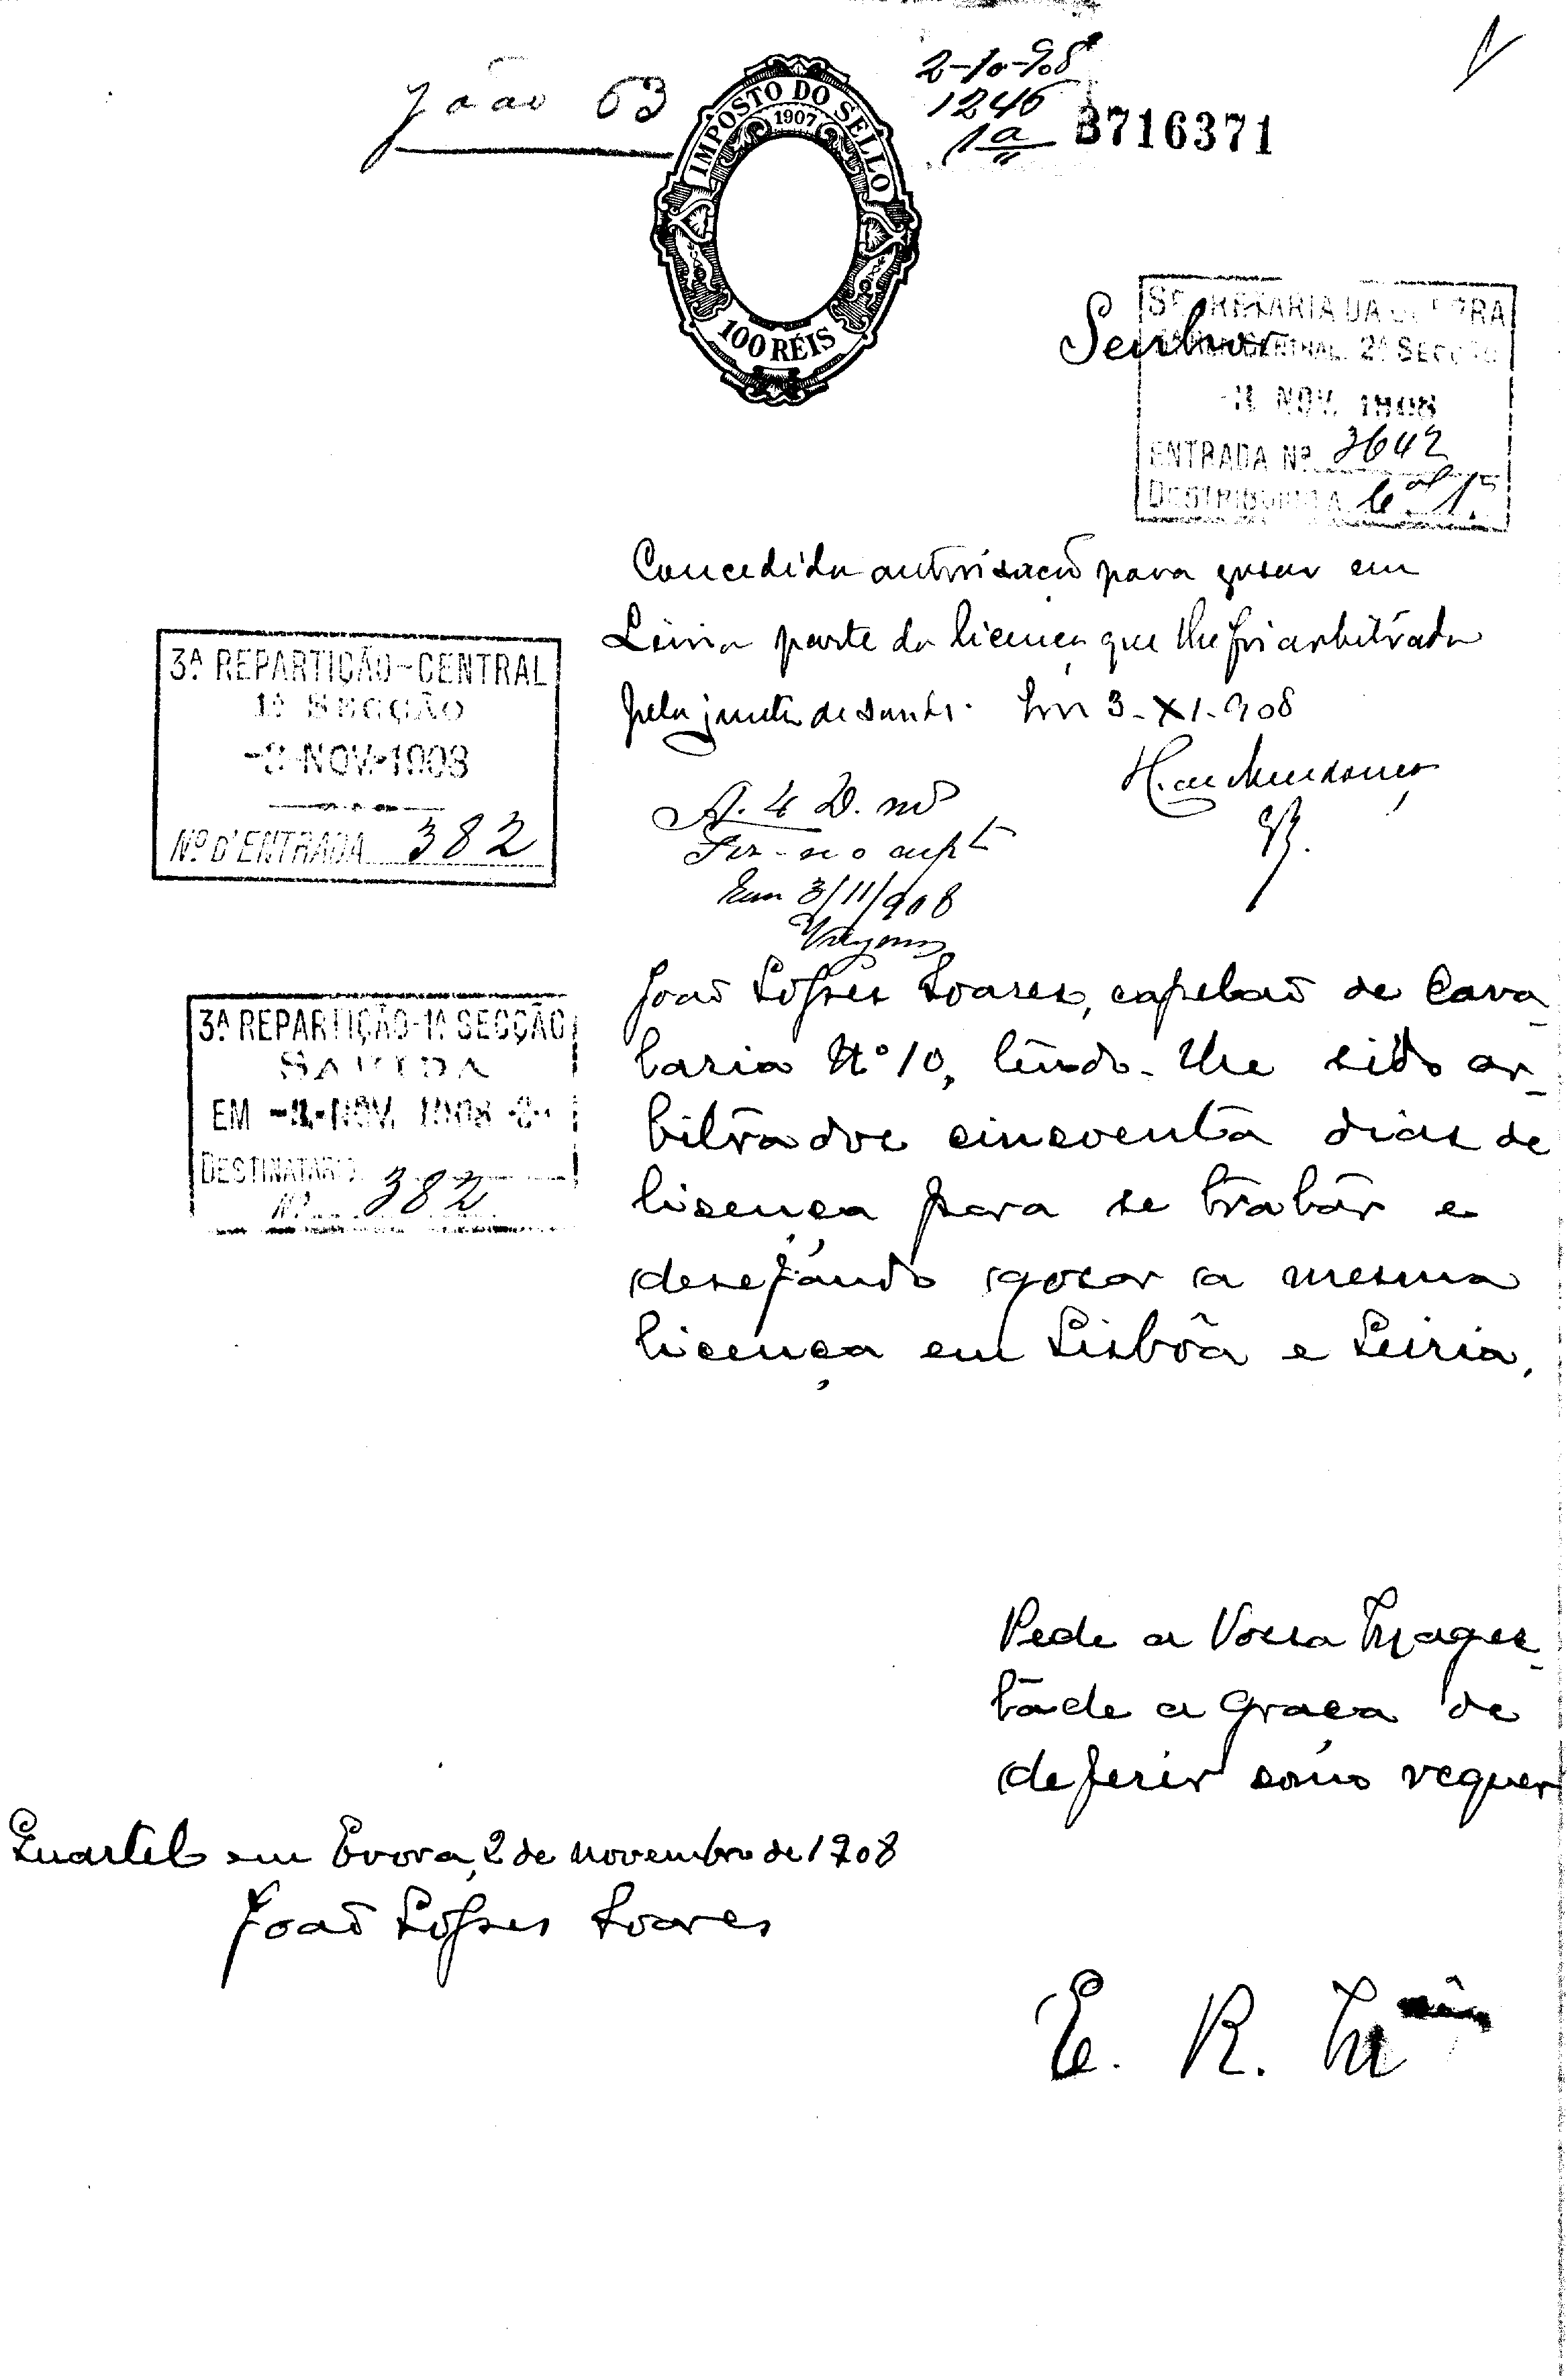 João 63
2-10-908
1246
1ª
3716371
IMPOSTO DO SELLO
1907
100 RÉIS
Senhor
SECRETARIA DA GUERRA
2ª SECÇÃO
NOV. 1908
ENTRADA Nº 3642
DESTRIBUIDA
Concedida autorisação para gosar em
Leiria parte da licença que lhe foi arbitrada
pela junta de saude. Em 3-XI-908
3ª REPARTIÇÃO-CENTRAL
1ª SECÇÃO
-3-NOV.-1908
Nº D'ENTRADA 382
Em 3/11/908
João Lopes Soares, capelão de Cava-
laria Nº 10, tendo-lhe sido ar-
bitrados cincoenta dias de
licença para se tratar e
desejando gosar a mesma
licença em Lisbôa e Leiria,
3ª REPARTIÇÃO-1ª SECÇÃO
SAHIDA
EM NOV. 1908
DESTINATARIO
Nº 382
Pede a Vossa Mages-
tade a graça de
deferir como requer
Quartel em Evora, 2 de novembro de 1908
João Lopes Soares
E. R. M